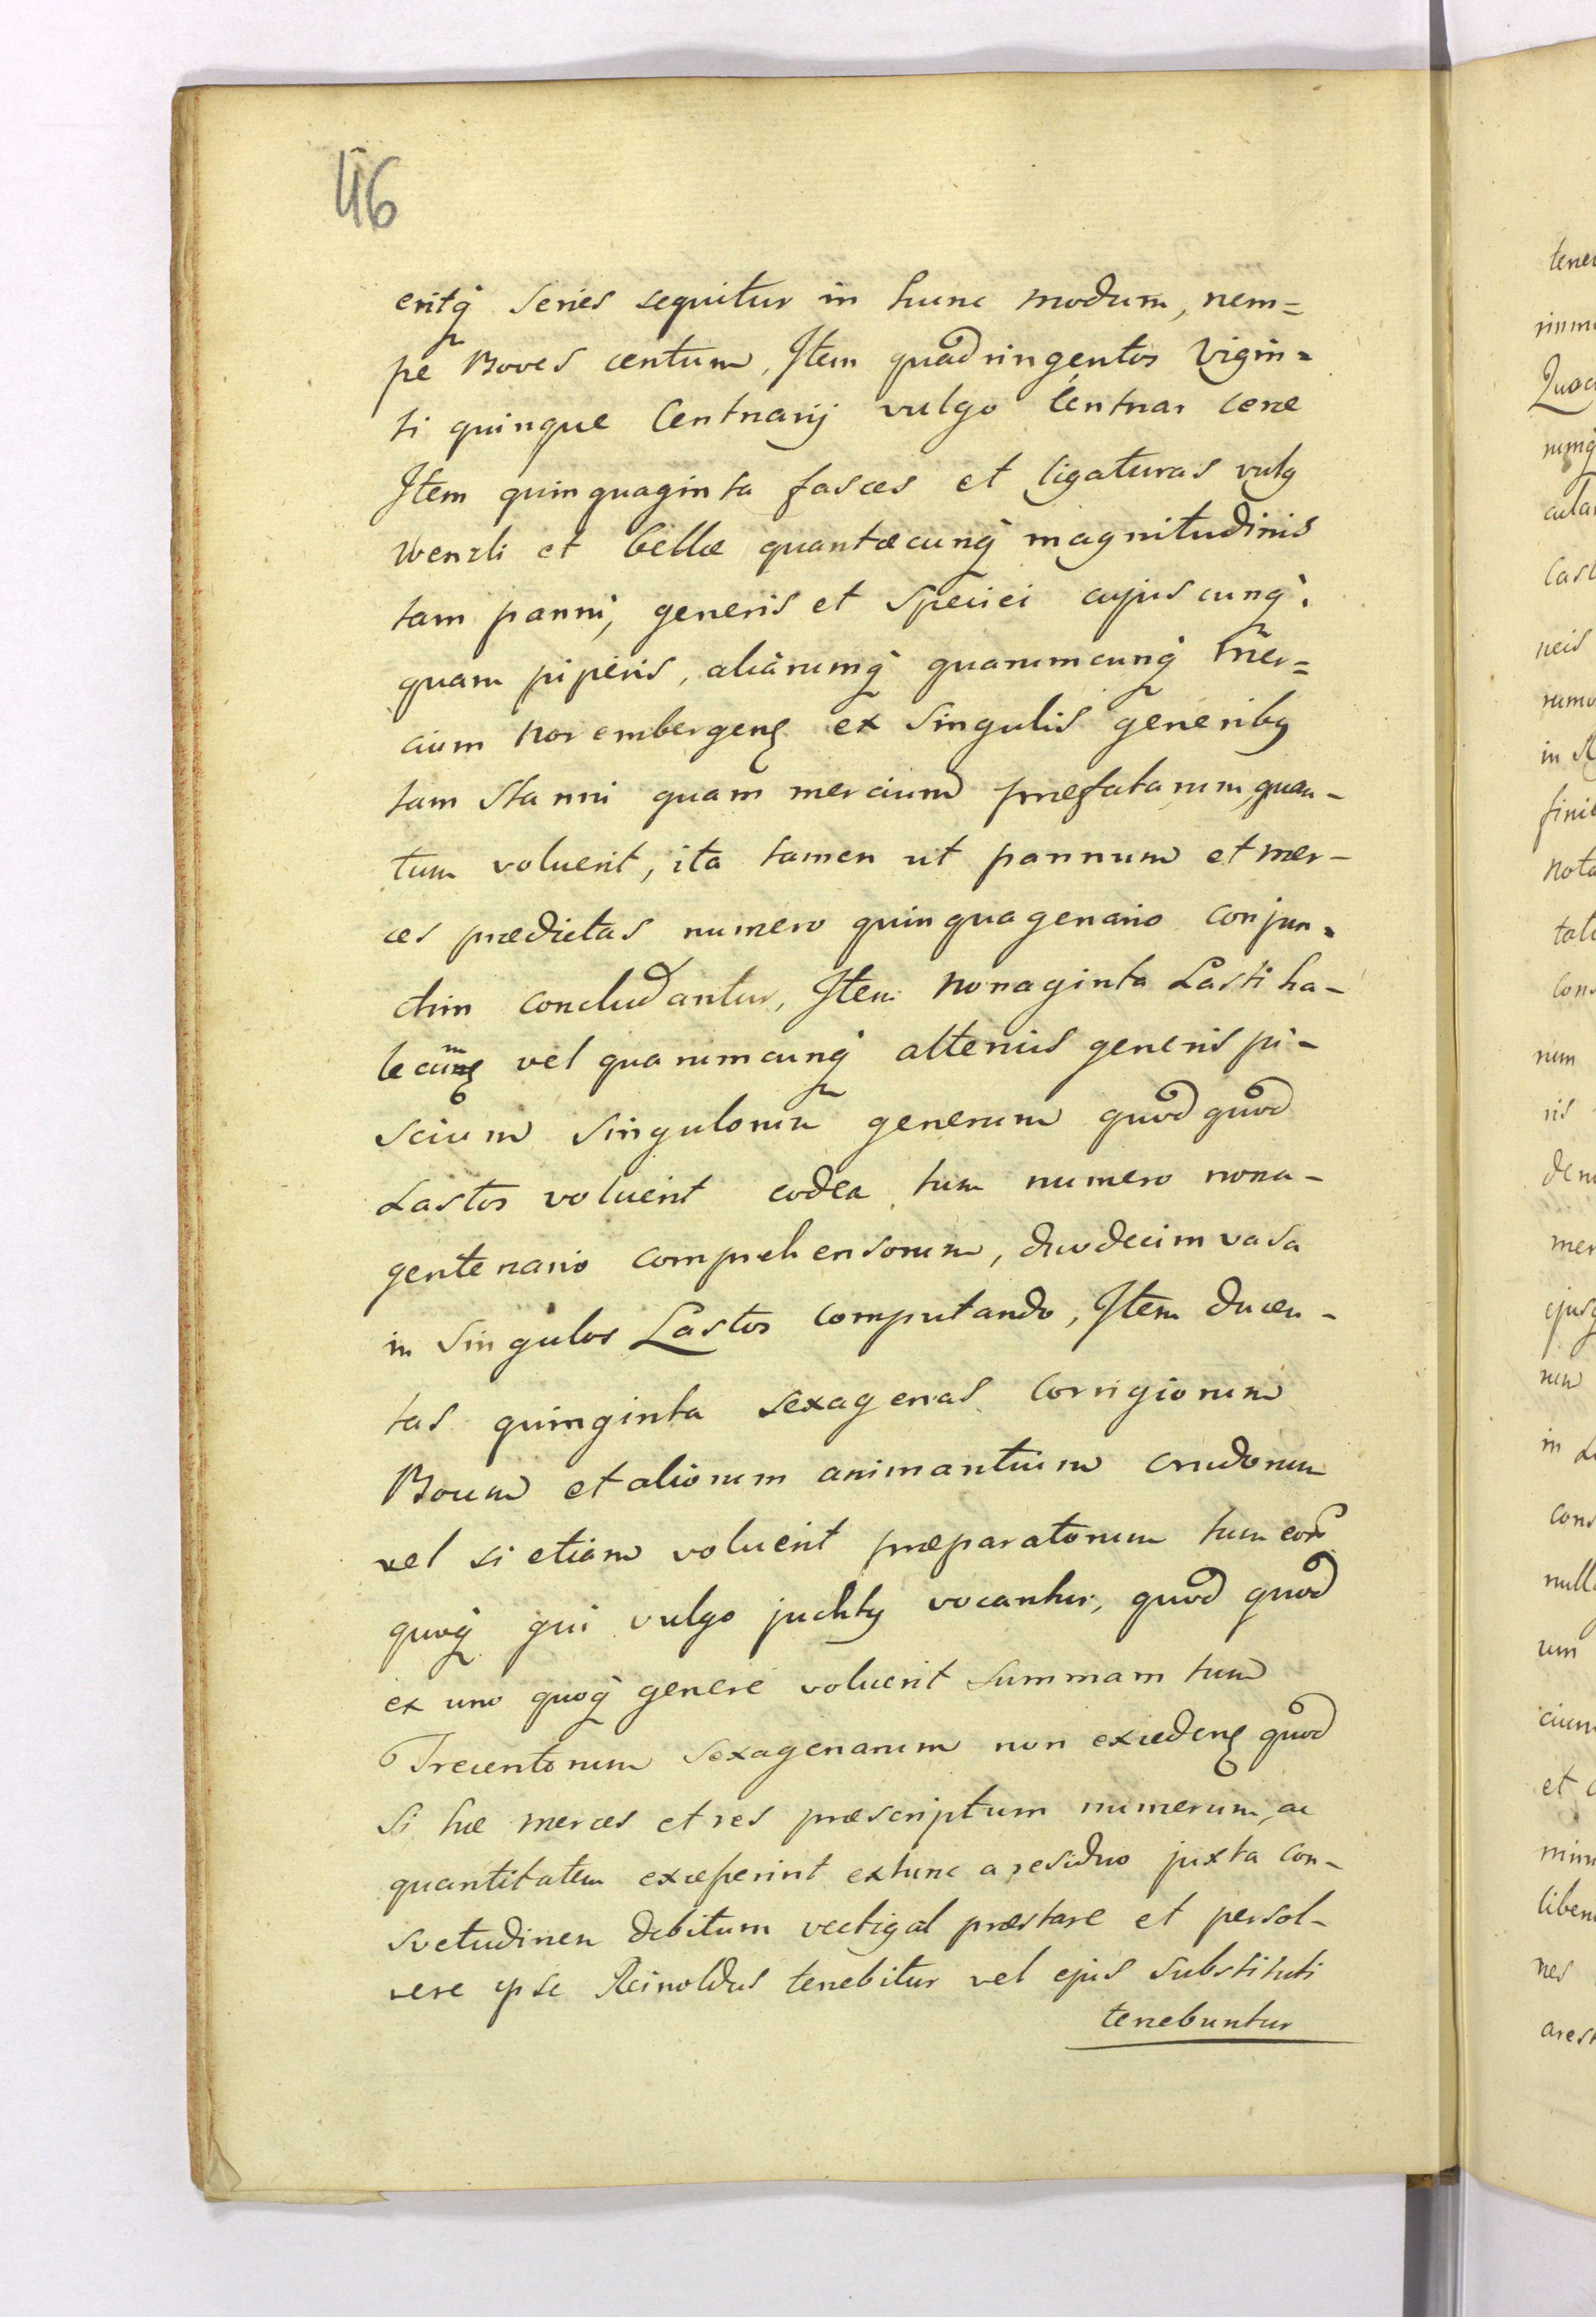 46
eritq́ series sequitur in hunc modum, nem=
pe Boves centum, Item quadringentos Vigin=
ti quinque Centnarij vulgo Centnar cere
Item quinquaginta fasces et ligaturas vulg
Wenzli et belle quantæcunq́ magnitudinis
tam panni, generis et speciei cujus cunq́.
quam piperis, aliarumq́ quarumcunq́ mer=
cium norembergenʒ ex singulis generibꝫ
tam stanni quam mercium præfatarum, quan-
tum voluerit, ita tamen ut pannum et mer-
ces prædictas numero quinquagenario conjun=
ctim concludantur, Item nonaginta Lasti ha-
lecum vel quarumcunq́ alterius generis pi-
scium singulorum generum quod quod
Lastos voluerit eodea tum numero nona-
gentenario comprehensorum, duodecim vasa
in singulos Lastos computando, Item ducen-
tas quinginta sexagenas Corrigiorum
Boum et aliorum animantium crudorum
vel si etiam voluerit præparatorum tum eor
quoq́ qui vulgo juchty vocantur, quod quod
ex uno quoq́ genere voluerit summam tum
Trecentorum sexagenarum non excedenʒ quod
si hæ merces et res præscriptum numerum, ac
quantitatem exceperint extunc a residuo juxta con-
svetudinem debitum vectigal præstare et persol-
vere ipse Reinoldus tenebitur vel ejus substituti
tenebuntur